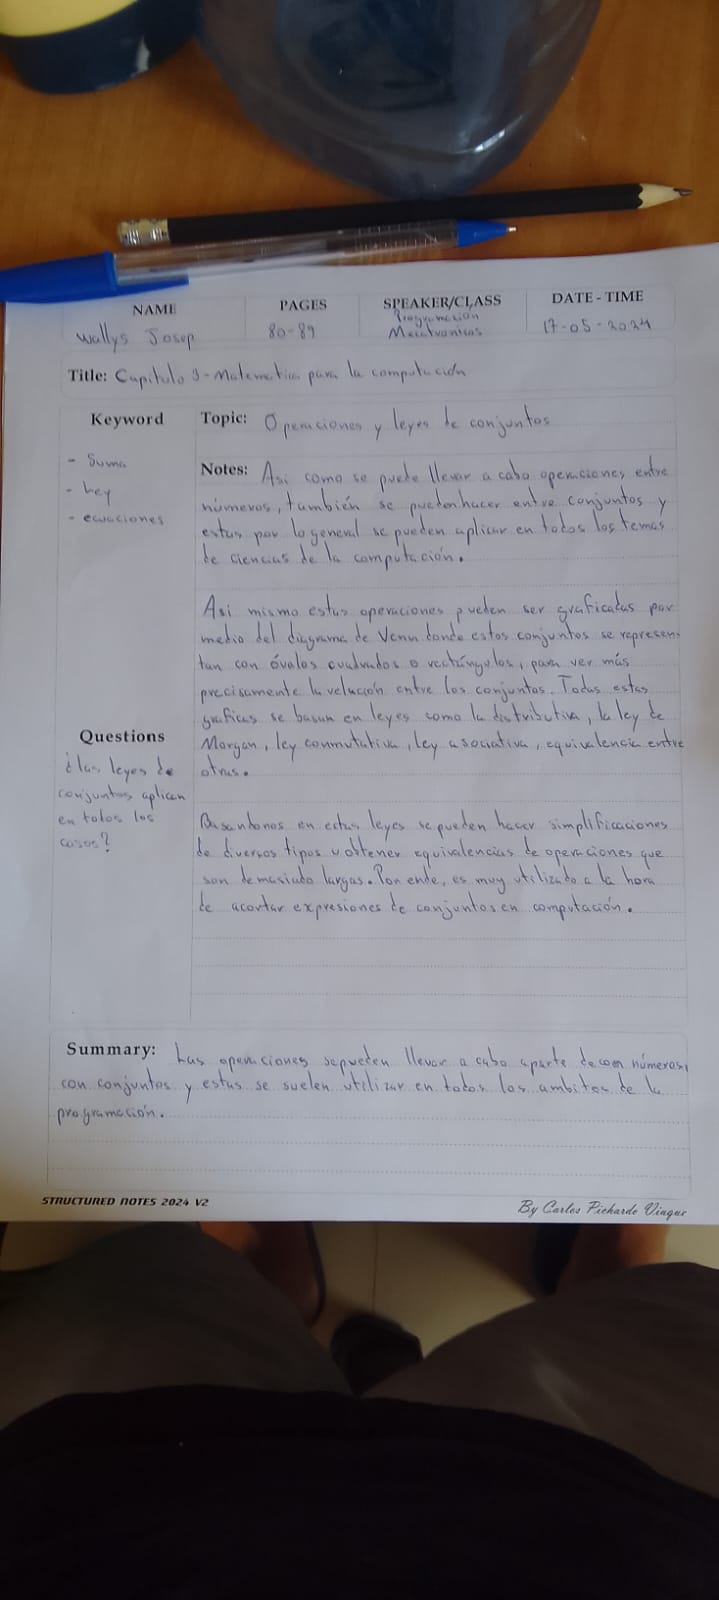 NAME
PAGES
SPEAKER/CLASS
DATE - TIME
Wallys Josep
80-89
Programación
Mecatronicas
17-05-2024
Title: Capitulo 3 - Matematica para la computación
Keyword
- Suma
- Ley
- ecuaciones
Topic: Operaciones y leyes de conjuntos
Notes: Asi como se puede llevar a cabo operaciones entre
números, también se pueden hacer entre conjuntos y
estas por lo general se pueden aplicar en todos los temas
de ciencias de la computación.
Asi mismo estas operaciones pueden ser graficadas por
medio del diagrama de Venn donde estos conjuntos se represen-
tan con óvalos cuadrados o rectángulos, para ver más
precisamente la relación entre los conjuntos. Todas estas
graficas se basan en leyes como la distributiva, la ley de
Morgan, ley conmutativa, ley asociativa, equivalencia entre
otras.
Questions
¿Las leyes de
conjuntos aplican
en todos los
casos?
Basandonos en estas leyes se pueden hacer simplificaciones
de diversos tipos u obtener equivalencias de operaciones que
son demasiado largas. Por ende, es muy utilizado a la hora
de acortar expresiones de conjuntos en computación.
Summary: Las operaciones se pueden llevar a cabo aparte de con números,
con conjuntos y estas se suelen utilizar en todos los ambitos de la
programación.
STRUCTURED NOTES 2024 V2
By Carlos Pichardo Viuque